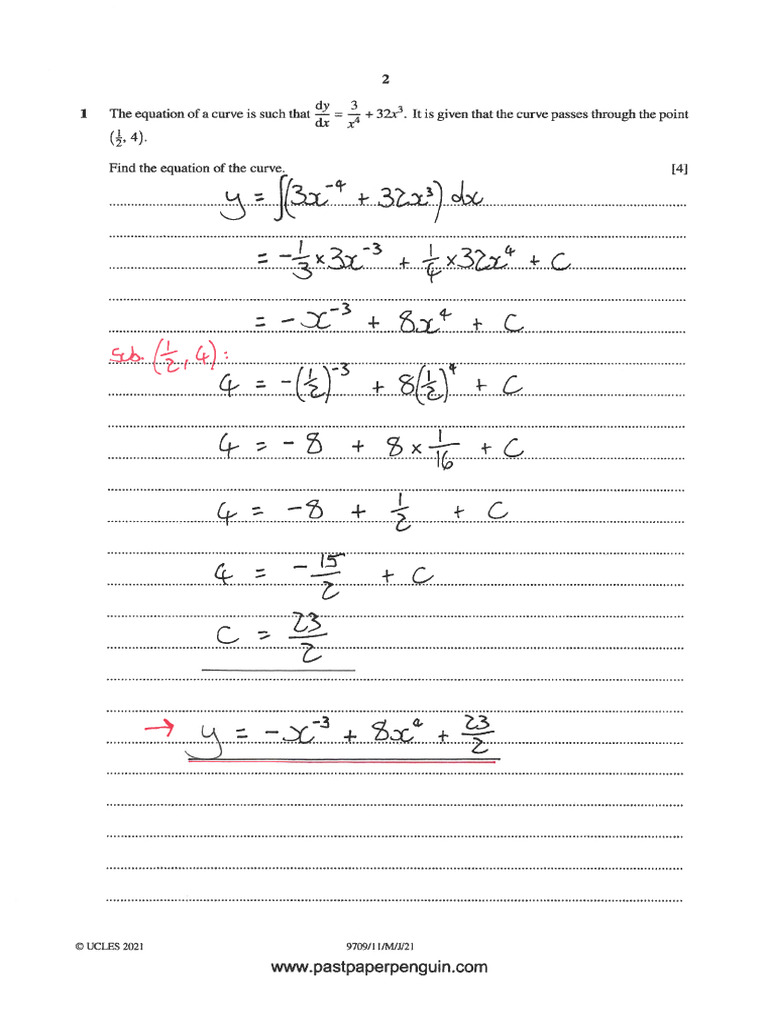 2
1 The equation of a curve is such that dy/dx = 3/x⁴ + 32x³. It is given that the curve passes through the point
(½, 4).
Find the equation of the curve. [4]
y = ∫(3x⁻⁴ + 32x³) dx
= -1/3 × 3x⁻³ + 1/4 × 32x⁴ + C
= -x⁻³ + 8x⁴ + C
Sub. (1/2, 4):
4 = -(1/2)⁻³ + 8(1/2)⁴ + C
4 = -8 + 8 × 1/16 + C
4 = -8 + 1/2 + C
4 = -15/2 + C
C = 23/2
→ y = -x⁻³ + 8x⁴ + 23/2
© UCLES 2021 9709/11/M/J/21
www.pastpaperpenguin.com